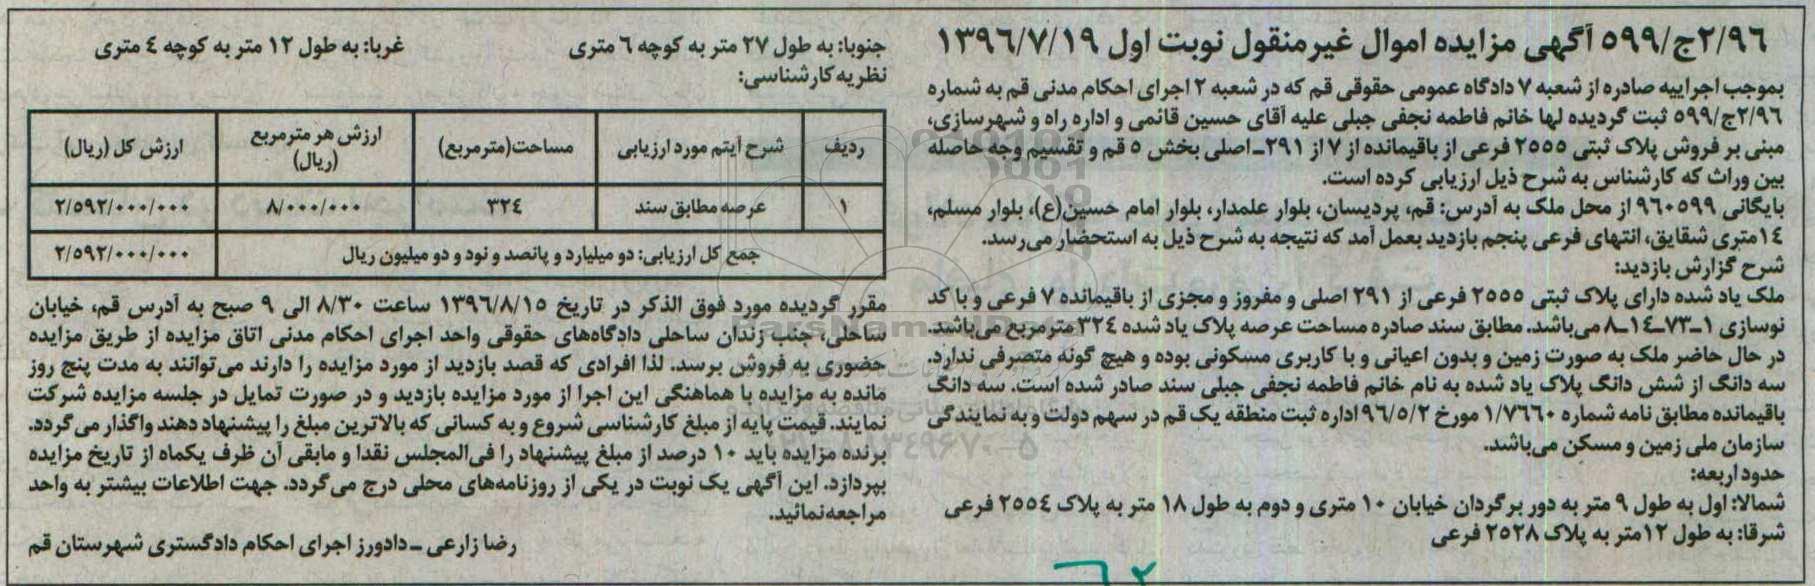 ۲/۹۶ج/۵۹۹ آگهی مزایده اموال غیرمنقول نوبت اول ۱۳۹۶/۷/۱۹
بموجب اجراییه صادره از شعبه ۷ دادگاه عمومی حقوقی قم که در شعبه ۲ اجرای احکام مدنی قم به شماره
۲/۹۶ج/۵۹۹ ثبت گردیده لها خانم فاطمه نجفی جبلی علیه آقای حسین قائمی و اداره راه و شهرسازی،
مبنی بر فروش پلاک ثبتی ۲۵۵۵ فرعی از باقیمانده از ۷ از ۲۹۱ـ اصلی بخش ۵ قم و تقسیم وجه حاصله
بین وراث که کارشناس به شرح ذیل ارزیابی کرده است.
بایگانی ۹۶۰۵۹۹ از محل ملک به آدرس: قم، پردیسان، بلوار علمدار، بلوار امام حسین(ع)، بلوار مسلم،
۱۴متری شقایق، انتهای فرعی پنجم بازدید بعمل آمد که نتیجه به شرح ذیل به استحضار می‌رسد.
شرح گزارش بازدید:
ملک یاد شده دارای پلاک ثبتی ۲۵۵۵ فرعی از ۲۹۱ اصلی و مفروز و مجزی از باقیمانده ۷ فرعی و با کد
نوسازی ۱ـ۷۳ـ۱۴ـ۸ می‌باشد. مطابق سند صادره مساحت عرصه پلاک یاد شده ۳۲۴مترمربع می‌باشد.
در حال حاضر ملک به صورت زمین و بدون اعیانی و با کاربری مسکونی بوده و هیچ گونه متصرفی ندارد.
سه دانگ از شش دانگ پلاک یاد شده به نام خانم فاطمه نجفی جبلی سند صادر شده است. سه دانگ
باقیمانده مطابق نامه شماره ۱/۷۶۶۰ مورخ ۹۶/۵/۲ اداره ثبت منطقه یک قم در سهم دولت و به نمایندگی
سازمان ملی زمین و مسکن می‌باشد.
حدود اربعه:
شمالا: اول به طول ۹ متر به دور برگردان خیابان ۱۰ متری و دوم به طول ۱۸ متر به پلاک ۲۵۵۴ فرعی
شرقا: به طول ۱۲متر به پلاک ۲۵۲۸ فرعی
جنوبا: به طول ۲۷ متر به کوچه ۶ متری غربا: به طول ۱۲ متر به کوچه ۴ متری
نظریه کارشناسی:
ردیف شرح آیتم مورد ارزیابی مساحت(مترمربع) ارزش هر مترمربع (ریال) ارزش کل (ریال)
۱ عرصه مطابق سند ۳۲۴ ۸/۰۰۰/۰۰۰ ۲/۵۹۲/۰۰۰/۰۰۰
جمع کل ارزیابی: دو میلیارد و پانصد و نود و دو میلیون ریال ۲/۵۹۲/۰۰۰/۰۰۰
مقرر گردیده مورد فوق الذکر در تاریخ ۱۳۹۶/۸/۱۵ ساعت ۸/۳۰ الی ۹ صبح به آدرس قم، خیابان
ساحلی، جنب زندان ساحلی دادگاه‌های حقوقی واحد اجرای احکام مدنی اتاق مزایده از طریق مزایده
حضوری به فروش برسد. لذا افرادی که قصد بازدید از مورد مزایده را دارند می‌توانند به مدت پنج روز
مانده به مزایده با هماهنگی این اجرا از مورد مزایده بازدید و در صورت تمایل در جلسه مزایده شرکت
نمایند. قیمت پایه از مبلغ کارشناسی شروع و به کسانی که بالاترین مبلغ را پیشنهاد دهند واگذار می‌گردد.
برنده مزایده باید ۱۰ درصد از مبلغ پیشنهاد را فی‌المجلس نقدا و مابقی آن ظرف یکماه از تاریخ مزایده
بپردازد. این آگهی یک نوبت در یکی از روزنامه‌های محلی درج می‌گردد. جهت اطلاعات بیشتر به واحد
مراجعه‌نمائید.
رضا زارعی ـ دادورز اجرای احکام دادگستری شهرستان قم